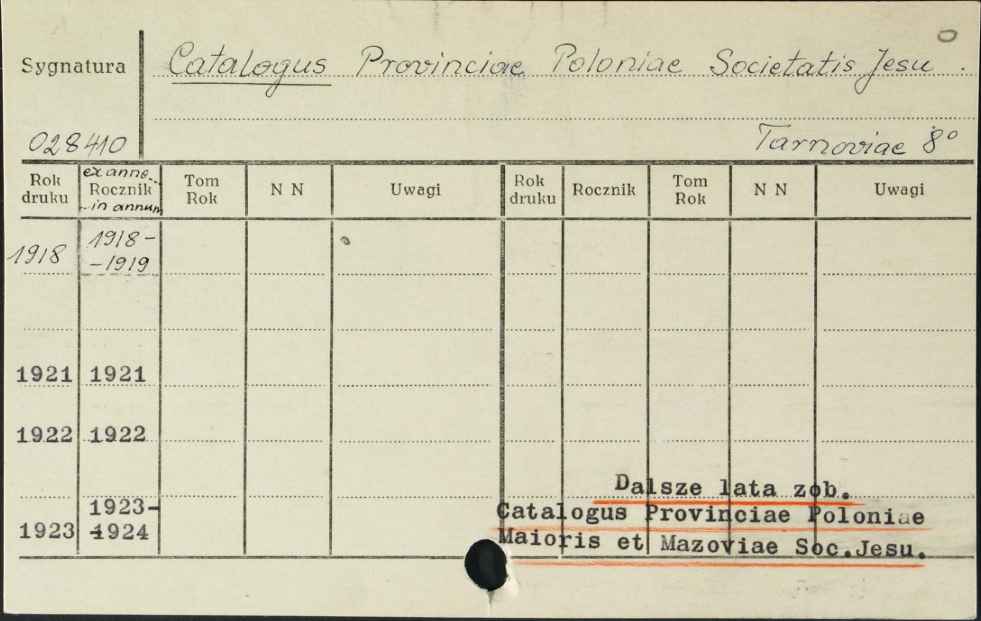 Sygnatura
Catalogus Provinciae Poloniae Societatis Jesu.
028410
Tarnoviae 8°
Rok druku
ex anno
Rocznik
in annum
Tom Rok
N N
Uwagi
Rok druku
Rocznik
Tom Rok
N N
Uwagi
1918 1918-
-1919
1921 1921
1922 1922
1923-
1923 -1924
Dalsze lata zob.
Catalogus Provinciae Poloniae
Maioris et Mazoviae Soc.Jesu.